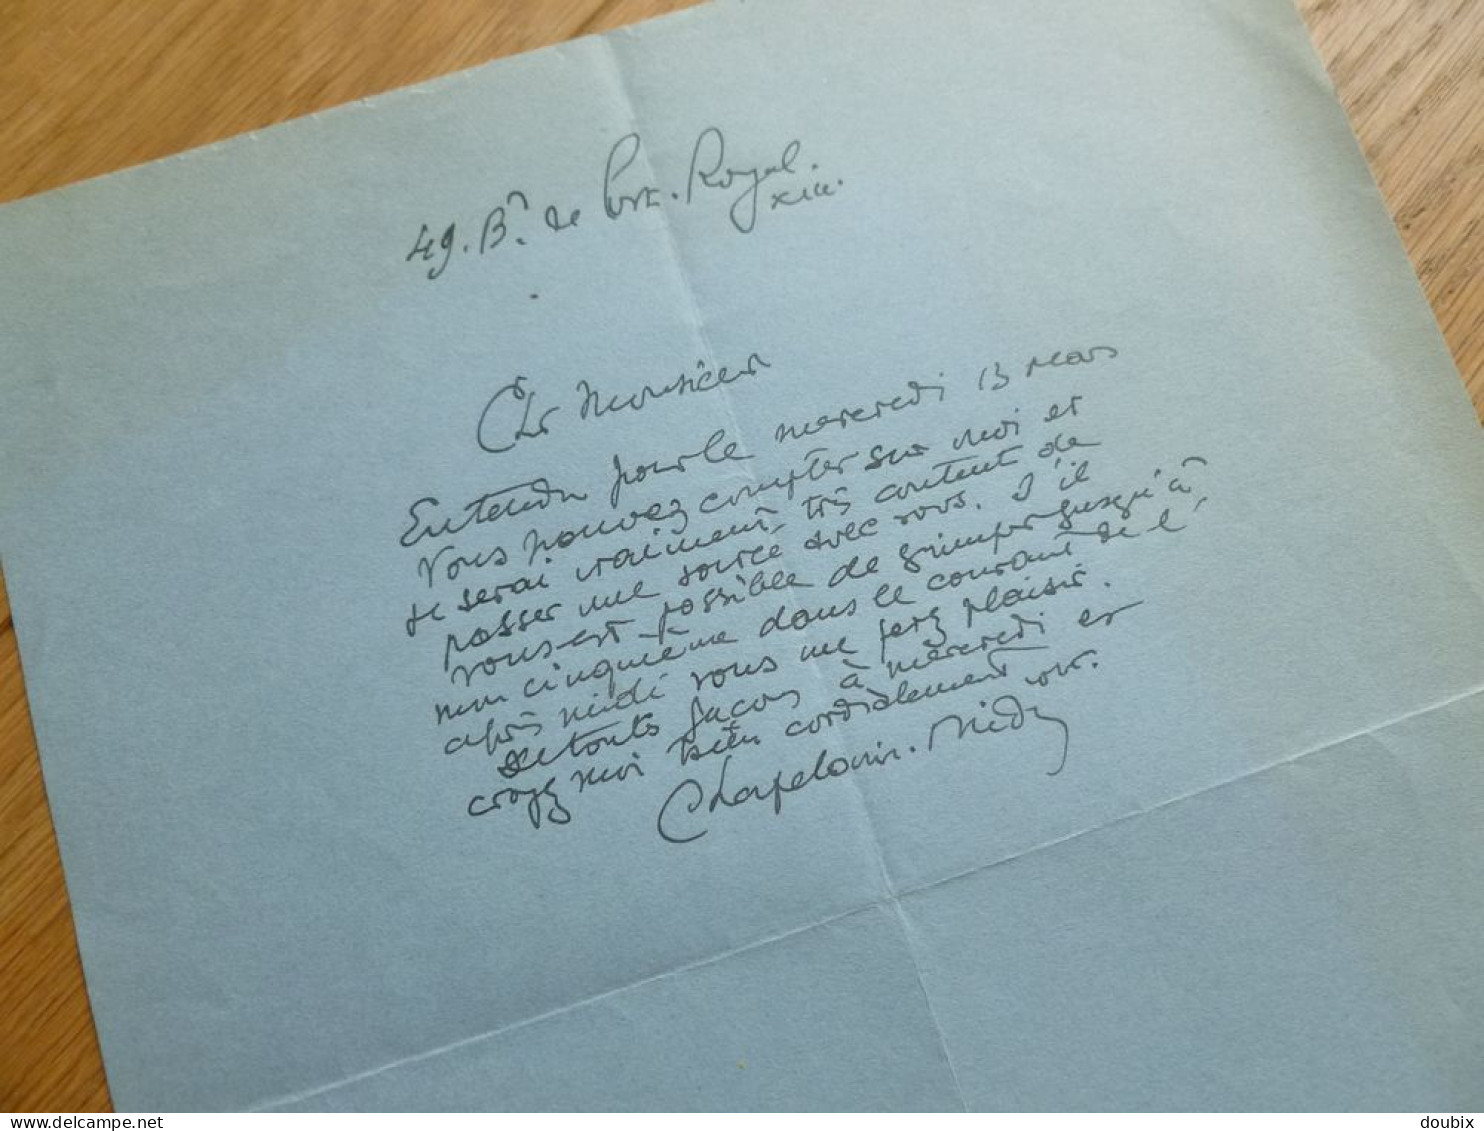 49. Bd. de Port. Royal.
XIII.
Cher Monsieur
Entendu pour le mercredi 13 Mars
Vous pouvez compter sur moi et
je serai vraiment très content de
passer une soirée avec vous. S'il
vous est possible de grimper jusqu'à
mon cinquième dans le courant de l'
après midi vous me ferez plaisir.
De toute façon à mercredi et
croyez moi bien cordialement vr.
Chapelain. Midy
delcampe.net
doubix